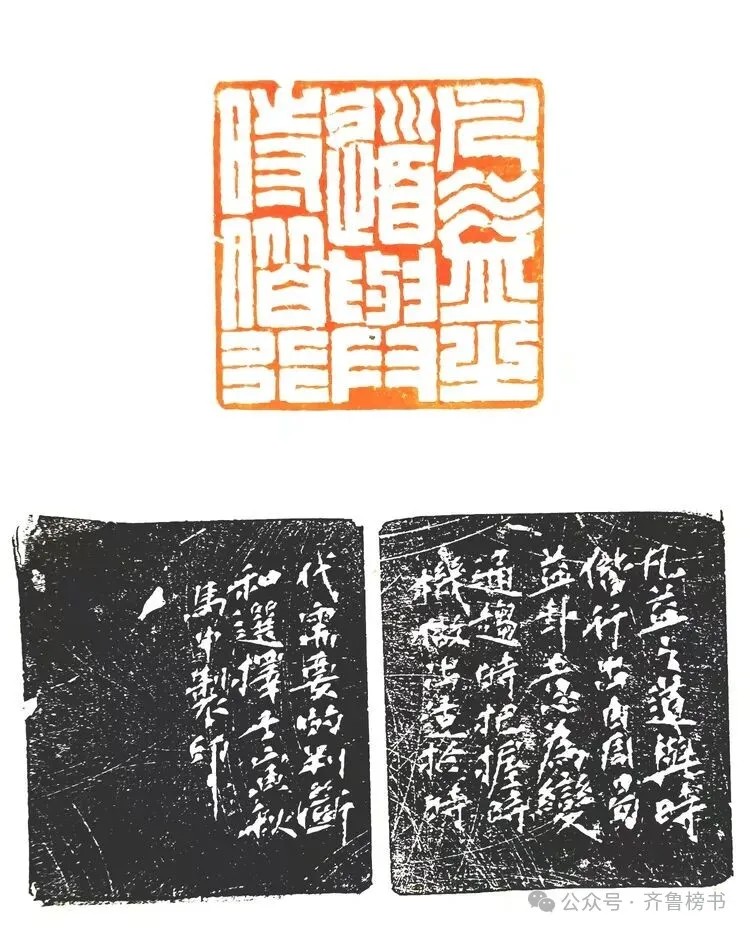 凡益之
道與
時偕行
凡益之道與時
偕行出自周易
益卦意為變
通趨時把握時
機做出適於時
代需要的判斷
和選擇壬寅秋
馬中製印
公众号·齐鲁榜书